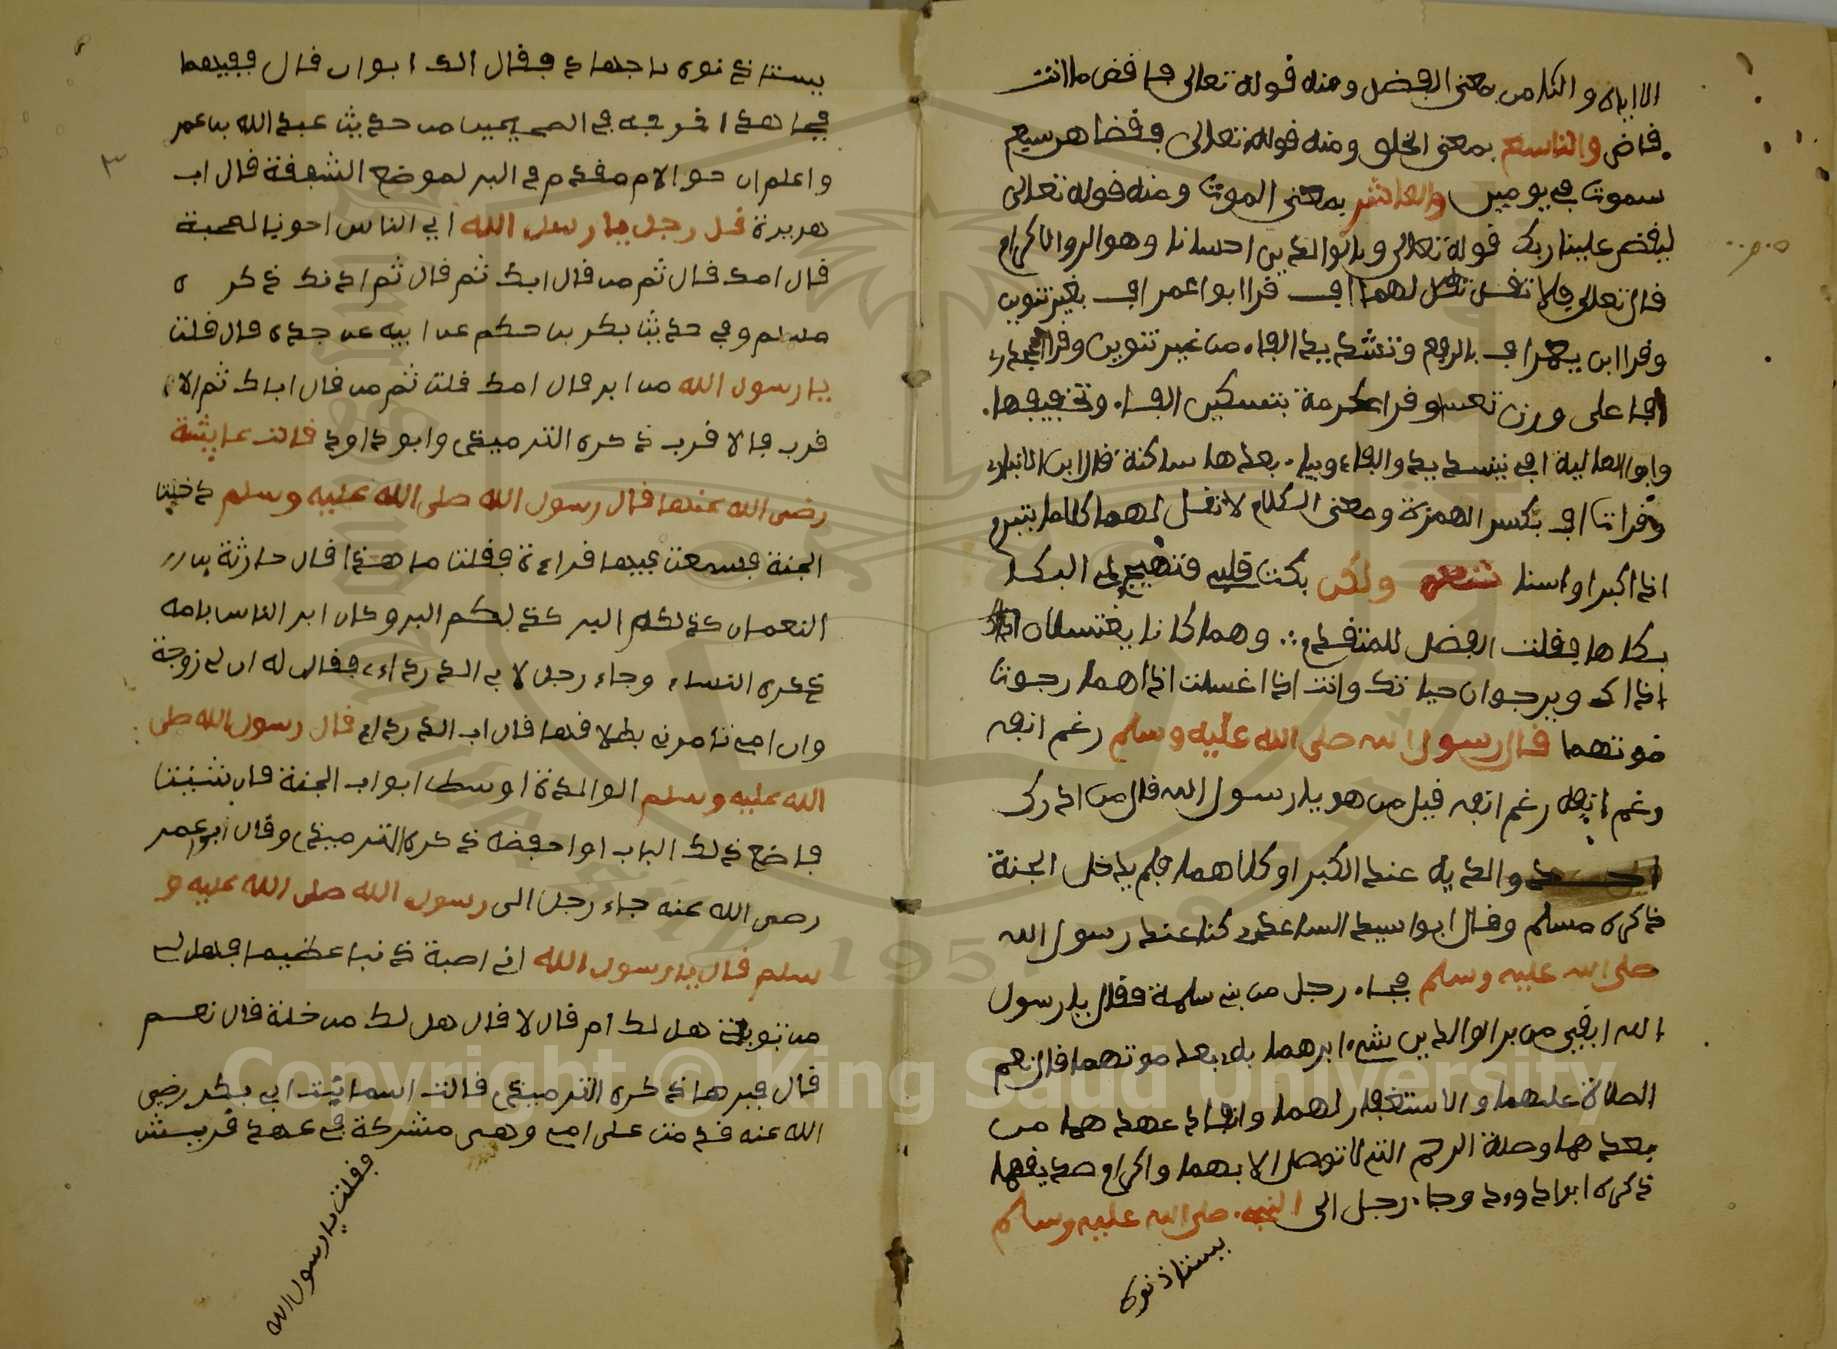 الا اياه والثامن بمعنى الفصل ومنه قوله تعالى فاقض ما انت
قاض والتاسع بمعنى الخلق ومنه قوله تعالى فقضاهن سبع
سموت في يومين والعاشر بمعنى الموت ومنه قوله تعالى
ليقض علينا ربك قوله تعالى وبالوالدين احسانا وهو البر والاكرام
قال تعالى فلا تقل لهما اف قرا ابوا عمر اف بغير تنوين
وقرا ابن يعمر اف بالرفع وتشديد الفاء من غير تنوين وقرا
افا على وزن تعسا وقرا عكرمة بتسكين الفاء وتخفيفها
وابوا العالية افي بتشديد الفاء وياء بعدها ساكنة قال ابن الانباري
وقرات اف بكسر الهمزة ومعنى الكلام لا تقل لهما كلاما يتبرم
اذا كبرا واسنا شعر ولكن بكت قبلي فهيج لي البكا
بكاها فقلت الفضل للمتقدم وهما كانا يغتسلان
اذاك ويرجوان حياتك وانت اذا اغسلت اذاهما رجوت
موتهما قال رسول الله صلى الله عليه وسلم رغم انفه
رغم انفه رغم انفه قيل من هو يا رسول الله قال من ادرك
والديه عند الكبر او كلاهما فلم يدخل الجنة
ذكره مسلم وقال ابوا سيد الساعدي كنا عند رسول الله
صلى الله عليه وسلم فجاء رجل من بني سلمة فقال يا رسول
الله ابقي من بر الوالدين شيء ابرهما به بعد موتهما قال نعم
الصلاة عليهما والاستغفار لهما وانفاذ عهدهما من
بعدهما وصلة الرحم التي لا توصل الا بهما واكرام صديقهما
ذكره ابوا داود وجاء رجل الى النبي صلى الله عليه وسلم
يستاذنوه
٣
يستاذنوه باجهاد فقال الك ابوان قال ففيهما
فجاهد اخرجه في الصحيحين من حديث عبد الله بن عمر
واعلم ان حق الام مقدم في البر لموضع الشفقة قال اب
هريرة قال رجل يا رسول الله اي الناس احق بالصحبة
قال امك قال ثم من قال ابك ثم قال ثم ادنك ذكره
مسلم وفي حديث بكر بن حكم عن ابيه عن جده قال قلت
يا رسول الله من ابر قال امك قلت ثم من قال اباك ثم الا
قرب فالاقرب ذكره الترميذي وابو داود قالت عايشة
رضى الله عنها قال رسول الله صلى الله عليه وسلم دخلت
الجنة فسمعت فيها قراءة فقلت ما هذا قال حارثة بن
النعمان كذلكم البر كذلكم البر وكان ابر الناس بامه
ذكره النساء وجاء رجل لابي الدرداء فقال له ان لي زوجة
وان امي تامرني بطلاقها قال اب الدرداء قال رسول الله صلى
الله عليه وسلم الوالدة اوسط ابواب الجنة فان شئت
فاضع ذلك الباب او احفضه ذكره الترميذي وقال ابو عمر
رضى الله عنه جاء رجل الى رسول الله صلى الله عليه و
سلم قال يا رسول الله اني اصبة ذنبا عظيما فهل لي
من توبة هل لك ام قال لا قال هل لك من خلة قال نعم
قال فبرها ذكره الترميذي قالت اسما بنت ابي بكر رضي
الله عنه قدمت على امي وهى مشركة في عهد قريش
فقلت يا رسول الله
Copyright © King Saud University
1957